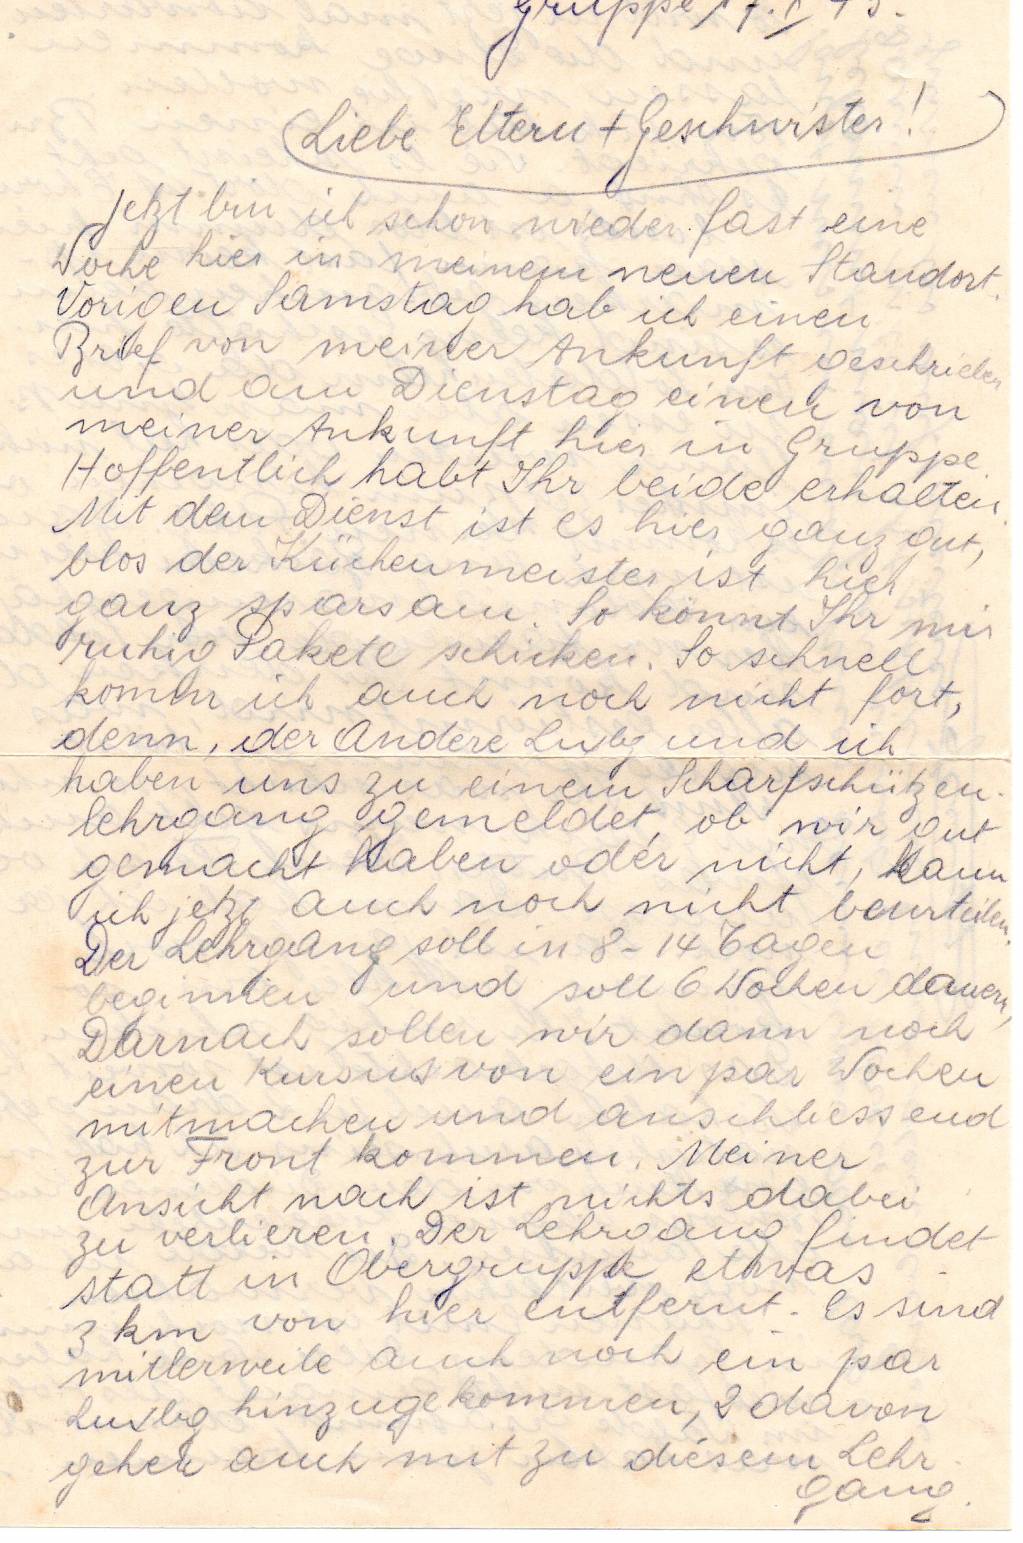 Gruppe, 17.
Liebe Eltern + Geschwister!
Jetzt bin ich schon wieder fast eine
Woche hier in meinem neuen Standort.
Vorigen Samstag hab ich einen
Brief von meiner Ankunft geschrieben
und am Dienstag einen von
meiner Ankunft hier in Gruppe.
Hoffentlich habt Ihr beide erhalten.
Mit dem Dienst ist es hier ganz gut,
blos der Küchenmeister ist hier
ganz sparsam. So könnt Ihr mir
ruhig Pakete schicken. So schnell
komm ich auch noch nicht fort,
denn, der Andere Luxbg und ich
haben uns zu einem Scharfschützen-
lehrgang gemeldet, ob wir gut
gemacht haben oder nicht, kann
ich jetzt auch noch nicht beurteilen.
Der Lehrgang soll in 8-14 Tagen
beginnen und soll 6 Wochen dauern,
Darnach sollen wir dann noch
einen Kursus von ein par Wochen
mitmachen und anschliessend
zur Front kommen. Meiner
Ansicht nach ist nichts dabei
zu verlieren. Der Lehrgang findet
statt in Obergruppe etwas
3 km von hier entfernt. Es sind
mitlerweile auch noch ein par
Luxbg hinzugekommen, 2 davon
gehen auch mit zu diesem Lehr
gang.